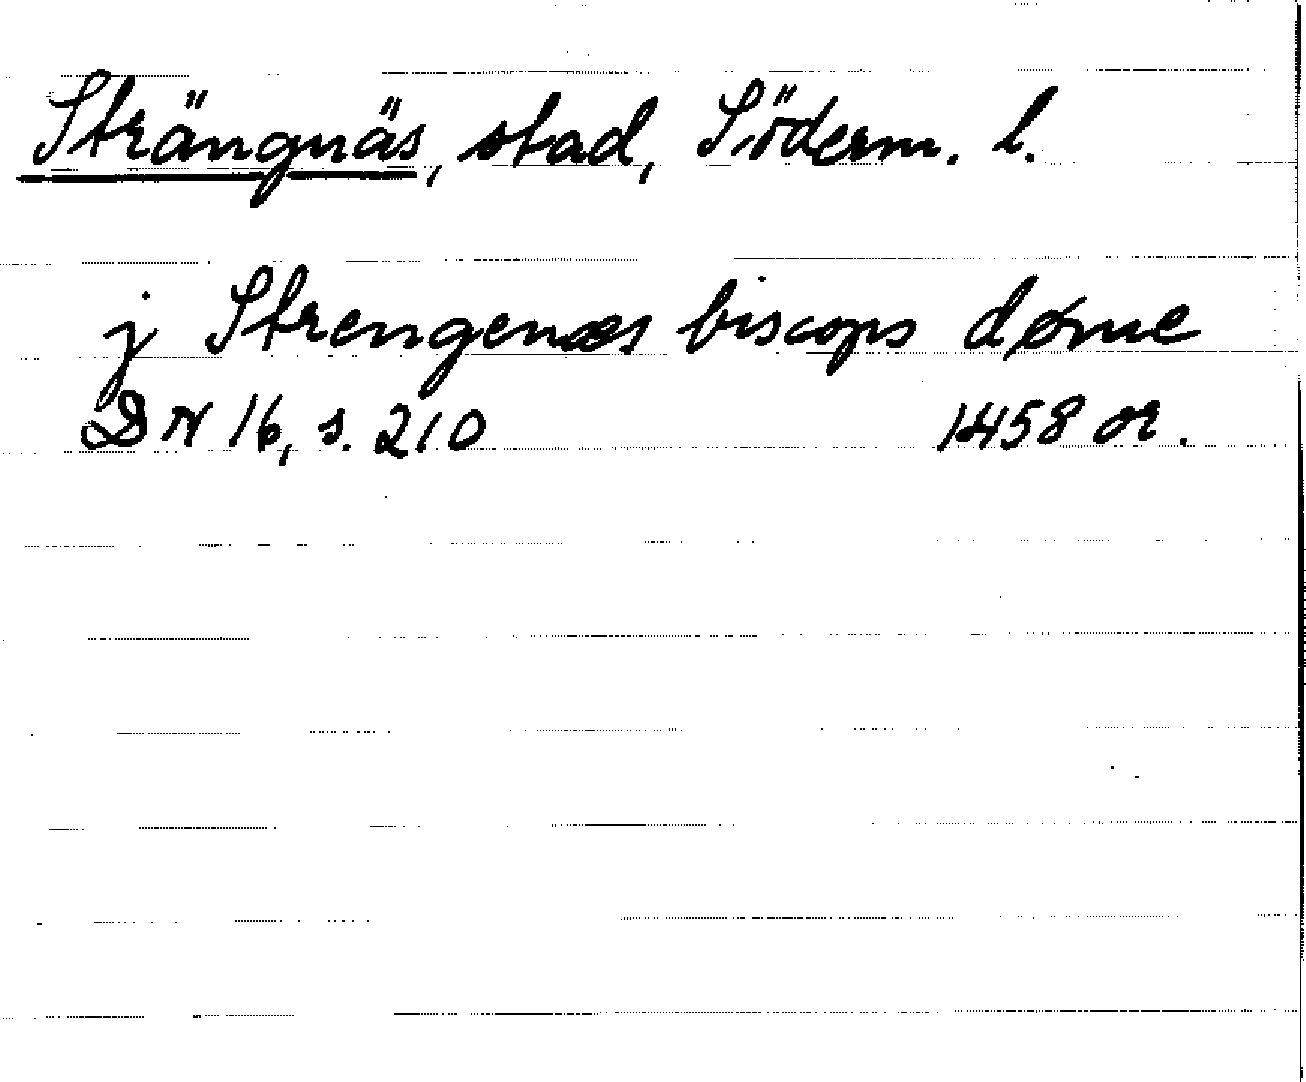 Strängnäs, stad, Söderm. l.
j Strengenæs biscops døme
DN 16, s. 210 1458 or.